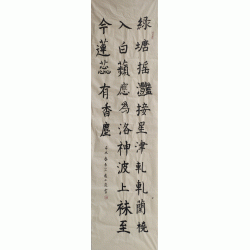 綠塘搖灩接星津軋軋蘭橈
入白蘋應為洛神波上襪至
今蓮蕊有香塵